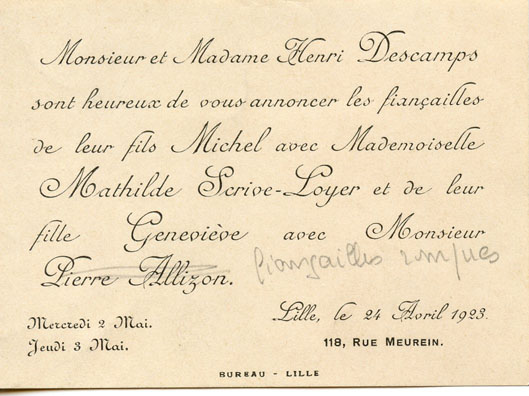 Monsieur et Madame Henri Descamps
sont heureux de vous annoncer les fiançailles
de leur fils Michel avec Mademoiselle
Mathilde Scrive-Loyer et de leur
fille Geneviève avec Monsieur
Pierre Allizon. fiançailles rompues
Mercredi 2 Mai.
Jeudi 3 Mai.
Lille, le 24 Avril 1923.
118, RUE MEUREIN.
BUREAU - LILLE